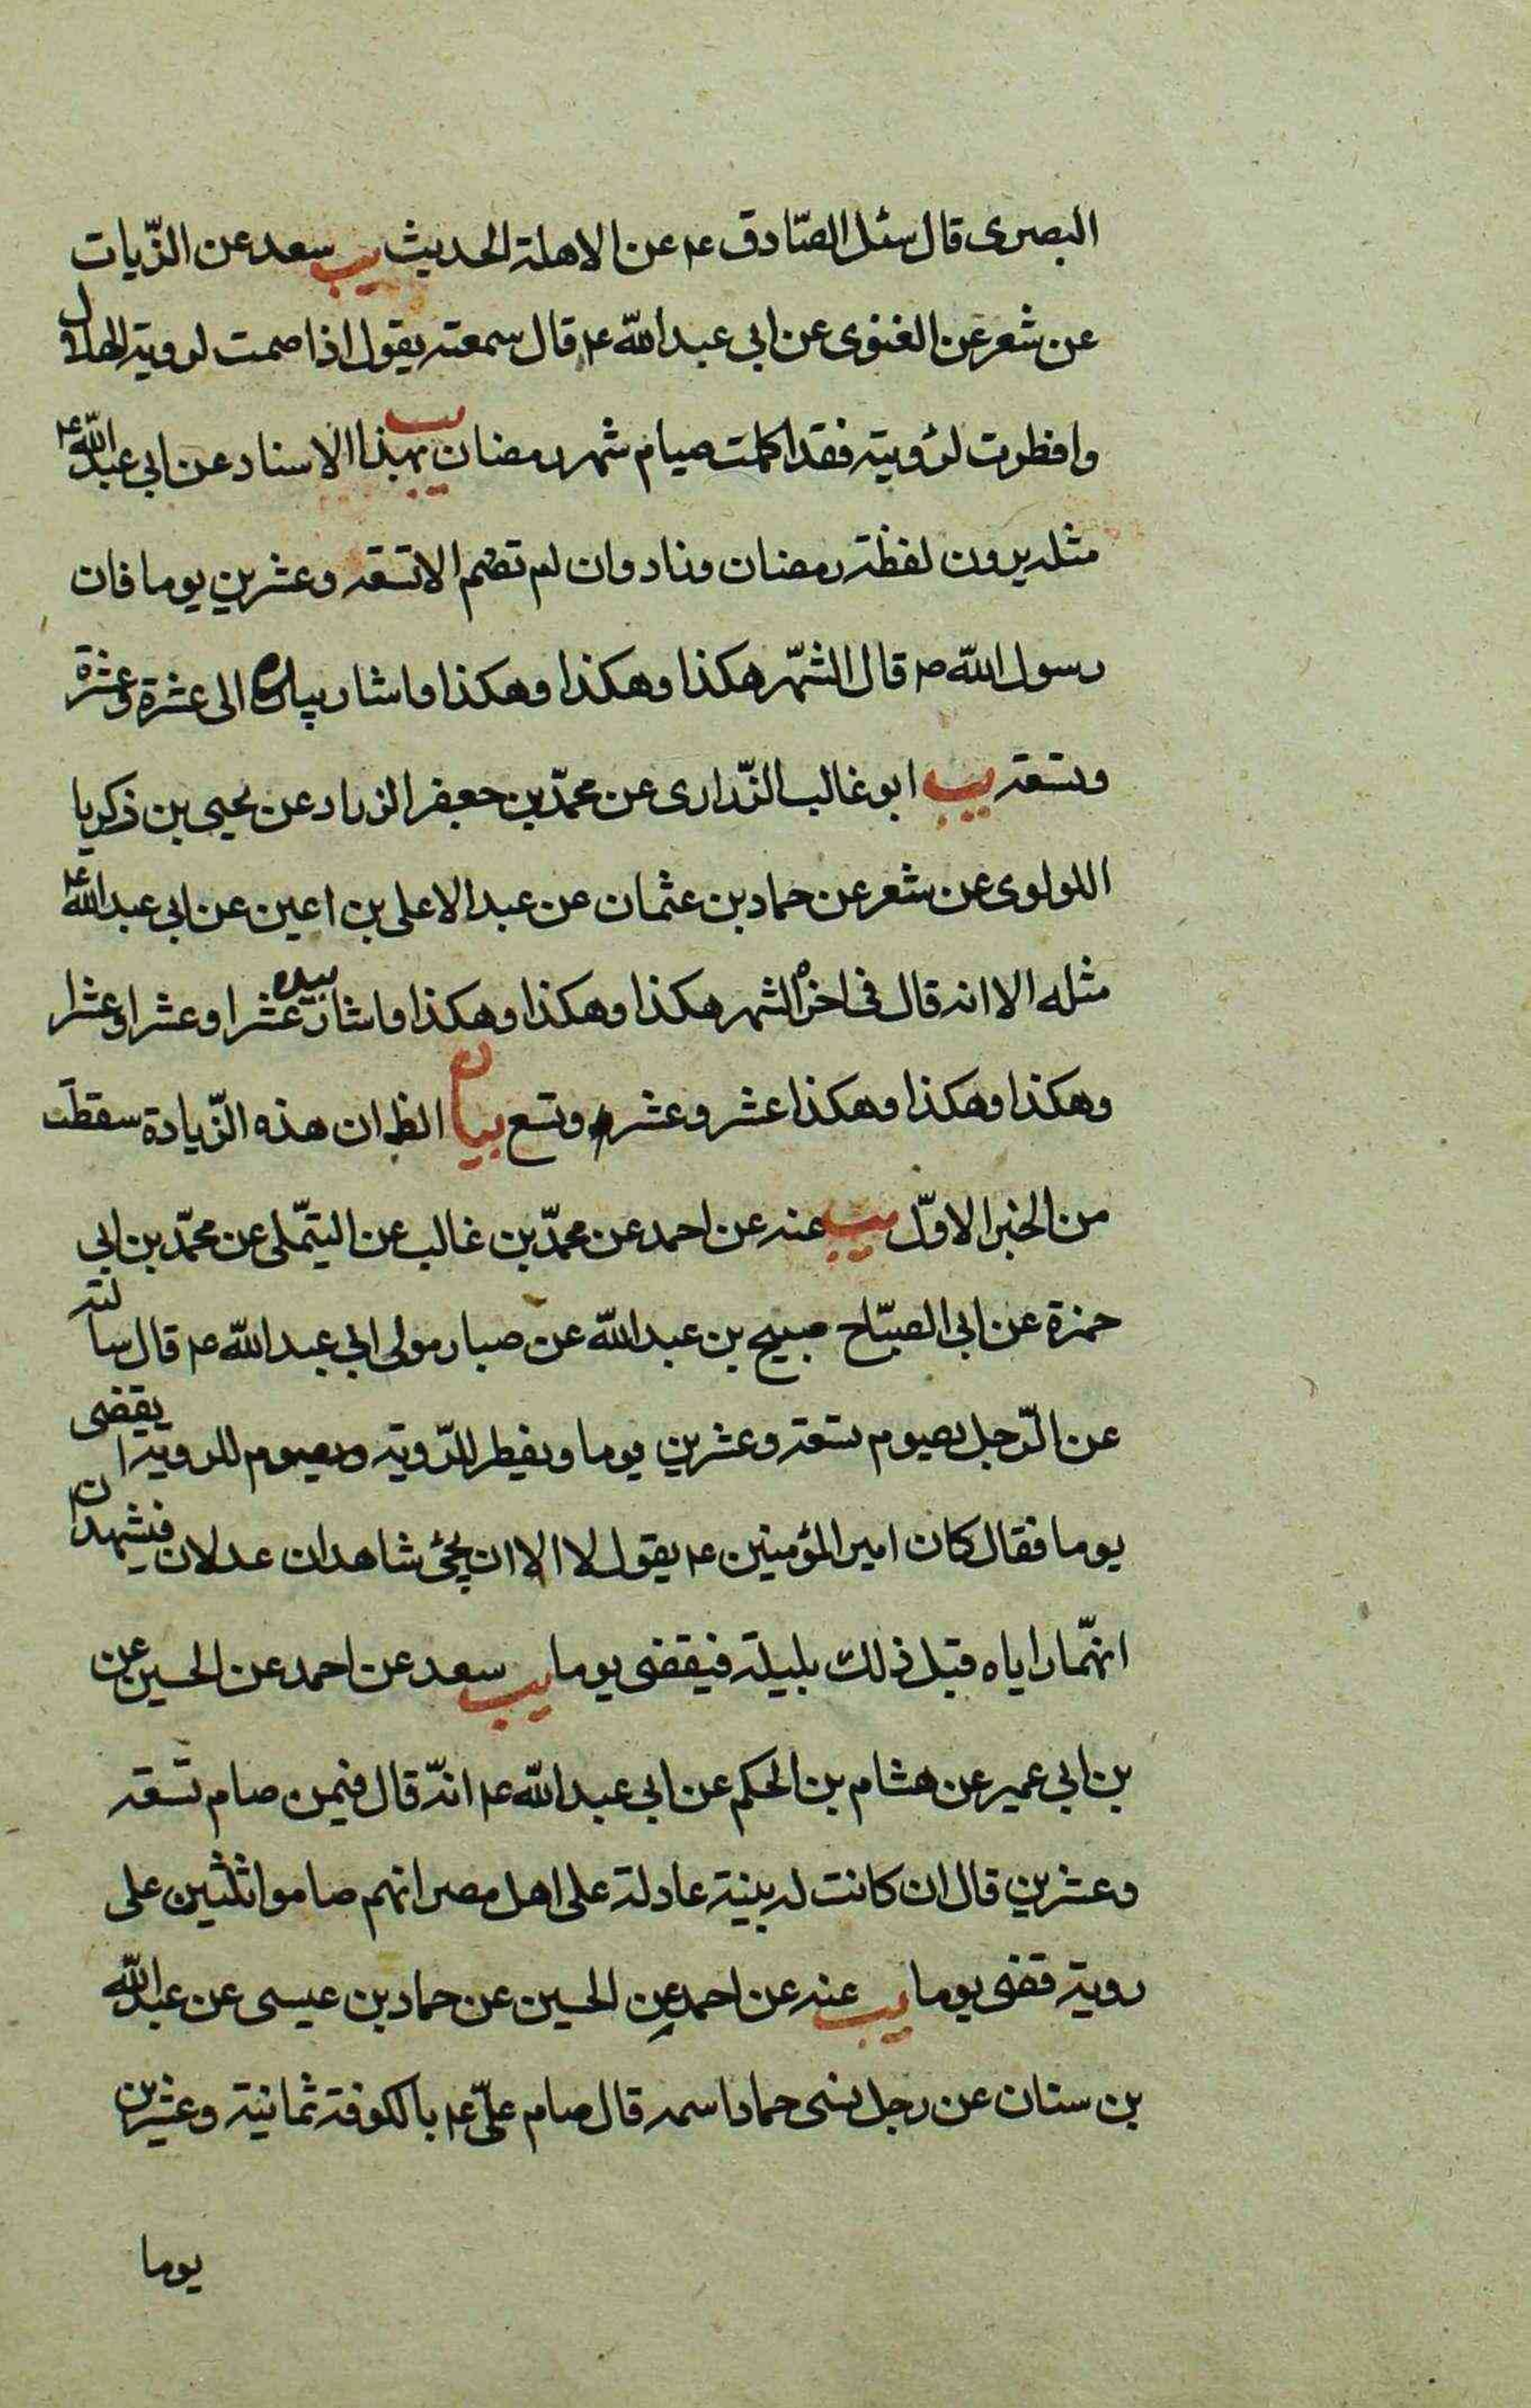 البصرى قال سئل الصّادق ع عن الاهلة الحديث يب سعد عن الزّيات
عن شعر عن الغنوى عن ابى عبد الله ع قال سمعته يقول اذا صمت لروية الهلال
وافطرت لرؤيته فقد اكملت صيام شهر رمضان يب بهذا الاسناد عن ابى عبد الله ع
مثله بدون لفظة رمضان وزاد وان لم تصم الا تسعة وعشرين يوما فان
رسول الله ص قال الشّهر هكذا وهكذا وهكذا واشار بيده الى عشرة وعشرة
وتسعة يب ابو غالب الزّرارى عن محمّد بن جعفر الرزاد عن يحيى بن زكريا
اللولوى عن شعر عن حماد بن عثمان عن عبد الاعلى بن اعين عن ابى عبد الله ع
مثله الا انه قال فى اخره الشهر هكذا وهكذا وهكذا واشار بيده عشرا وعشرا وعشرا
وهكذا وهكذا وهكذا عشر وعشر وتسع بيان الظ ان هذه الزّيادة سقطت
من الخبر الاوّل يب عنه عن احمد عن محمّد بن غالب عن التيمّلى عن محمّد بن ابى
حمزة عن ابى الصّباح صبيح بن عبد الله عن صبار مولى ابى عبد الله ع قال سالته
عن الرّجل يصوم تسعة وعشرين يوما ويفطر للرّوية ويصوم للروية ايقضى
يوما فقال كان امير المؤمنين ع يقول لا الا ان يجئ شاهدان عدلان فيشهدان
انهّما راياه قبل ذلك بليلة فيقضى يوما يب سعد عن احمد عن الحسين عن
بن ابى عمير عن هشام بن الحكم عن ابى عبد الله ع انّه قال فيمن صام تسعة
وعشرين قال ان كانت له بينة عادلة على اهل مصر انهم صاموا ثلثين على
روية قضى يوما يب عنه عن احمد عن الحسين عن حماد بن عيسى عن عبد الله
بن سنان عن رجل نسى حماد اسمه قال صام علىّ ع بالكوفة ثمانية وعشرين
يوما